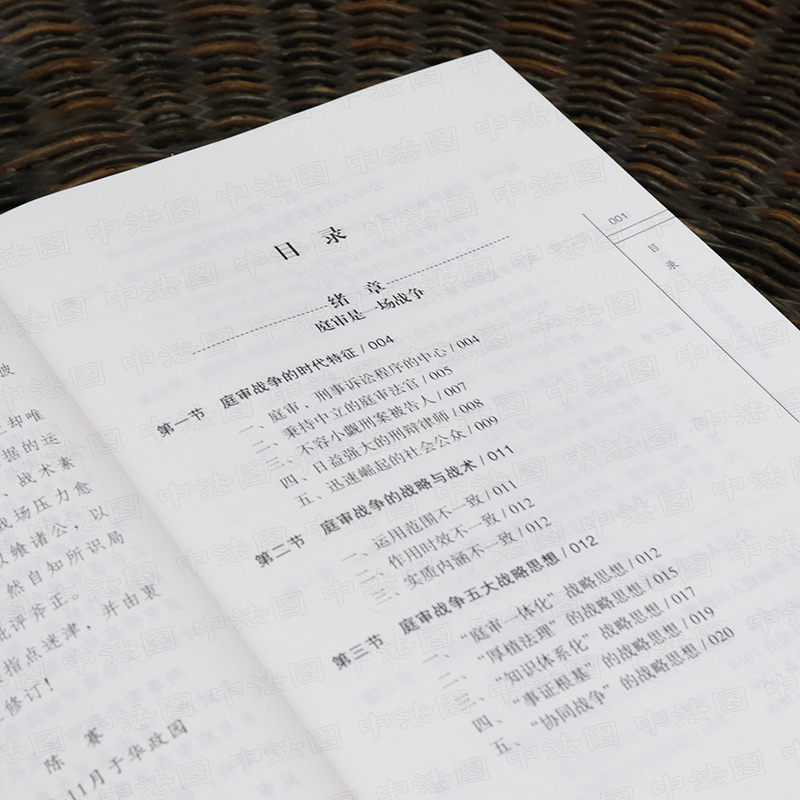 波
却唯
据的运
、战术素
战场压力愈
以飨诸公，以
然自知所识局
批评斧正。
指点迷津，并由衷
修订！
陈赛
11月于华政园
001
目录
目 录
绪 章
庭审是一场战争
第一节 庭审战争的时代特征 / 004
一、庭审，刑事诉讼程序的中心 / 004
二、秉持中立的庭审法官 / 005
三、不容小觑刑案被告人 / 007
四、日益强大的刑辩律师 / 008
五、迅速崛起的社会公众 / 009
第二节 庭审战争的战略与战术 / 011
一、运用范围不一致 / 011
二、作用时效不一致 / 012
三、实质内涵不一致 / 012
第三节 庭审战争五大战略思想 / 012
一、“庭审一体化”战略思想 / 012
二、“厚植法理”的战略思想 / 015
三、“知识体系化”战略思想 / 017
四、“事证根基”的战略思想 / 019
五、“协同战争”的战略思想 / 020
中法图